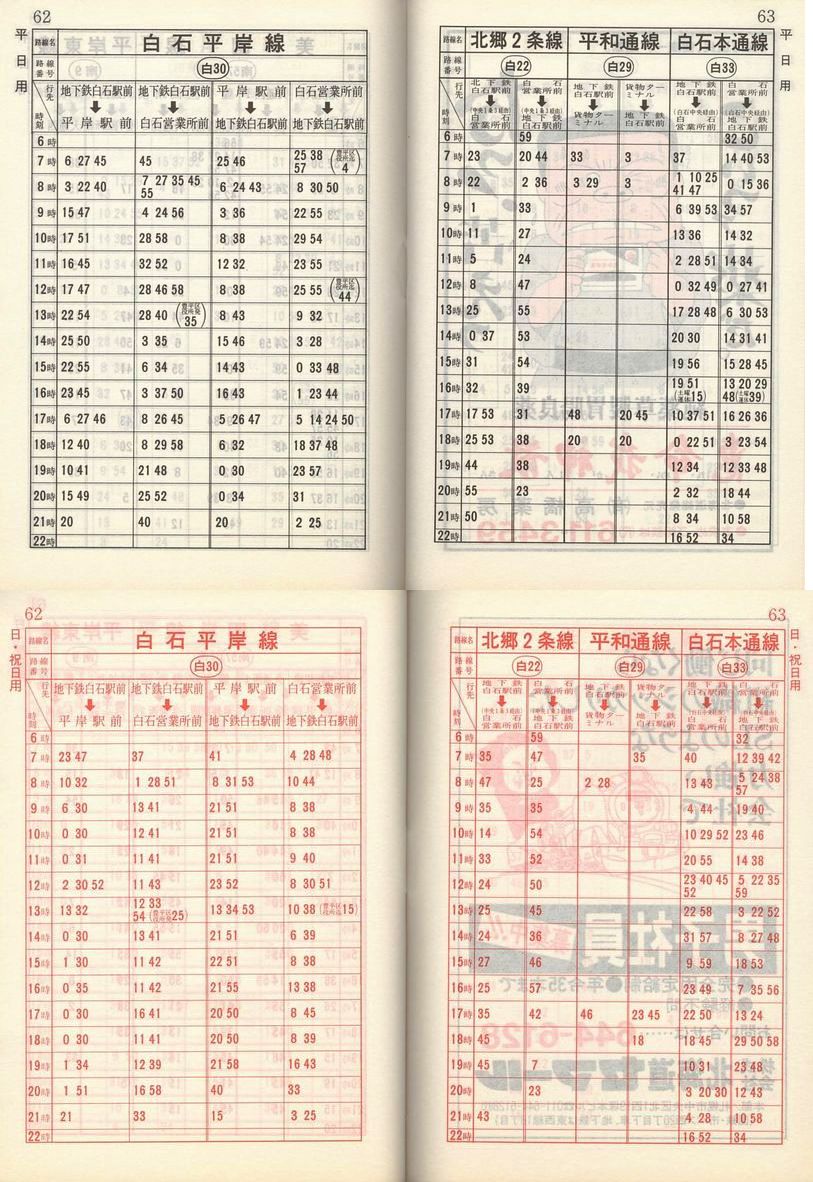 62
平日用
路線名 白石平岸線
路線番号 白30
行先 時刻 地下鉄白石駅前 → 平岸駅前 地下鉄白石駅前 → 白石営業所前 平岸駅前 → 地下鉄白石駅前 白石営業所前 → 地下鉄白石駅前
6時
7時 6 27 45 45 25 46 25 38 57 (豊平区役所迄 4)
8時 3 22 40 7 27 35 45 55 6 24 43 8 30 50
9時 15 47 4 24 56 3 36 22 55
10時 17 51 28 58 8 38 29 54
11時 16 45 32 52 12 32 23 55
12時 17 47 28 46 58 8 38 25 55 (豊平区役所迄 44)
13時 22 54 28 40 (豊平区役所発 35) 8 43 9 32
14時 25 50 3 35 15 46 3 28
15時 22 55 6 34 14 43 0 33 48
16時 23 45 3 37 50 16 43 1 23 44
17時 6 27 46 8 26 45 5 26 47 5 14 24 50
18時 12 40 8 29 58 6 32 18 37 48
19時 10 41 21 48 0 30 23 57
20時 15 49 25 52 0 34 31
21時 20 40 20 2 25
22時
63
平日用
路線名 北郷2条線 平和通線 白石本通線
路線番号 白22 白29 白33
行先 時刻 北地下鉄白石駅前 → (中央1条3経由) 白石営業所前 白石営業所前 → (中央1条3経由) 地下鉄白石駅前 地下鉄白石駅前 → 貨物ターミナル 貨物ターミナル → 地下鉄白石駅前 地下鉄白石駅前 → (白石中央経由) 白石営業所前 白石営業所前 → (白石中央経由) 地下鉄白石駅前
6時 59 32 50
7時 23 20 44 33 3 37 14 40 53
8時 22 2 36 3 29 3 1 10 25 41 47 0 15 36
9時 1 33 6 39 53 34 57
10時 11 27 13 36 14 32
11時 5 24 2 28 51 14 34
12時 8 47 0 32 49 0 27 41
13時 25 55 17 28 48 6 30 53
14時 0 37 53 20 30 14 31 41
15時 31 54 19 56 15 28 45
16時 32 39 19 51 (土曜運休15) 13 20 29 48 (土曜運休39)
17時 17 53 31 48 20 45 10 37 51 16 26 36
18時 25 53 38 20 20 0 22 51 3 23 54
19時 44 38 12 34 12 33 48
20時 55 23 2 32 18 44
21時 50 8 34 10 58
22時 16 52 34
62
日・祝日用
路線名 白石平岸線
路線番号 白30
行先 時刻 地下鉄白石駅前 → 平岸駅前 地下鉄白石駅前 → 白石営業所前 平岸駅前 → 地下鉄白石駅前 白石営業所前 → 地下鉄白石駅前
6時
7時 23 47 37 41 4 28 48
8時 10 32 1 28 51 8 31 53 10 44
9時 6 30 13 41 21 51 8 38
10時 0 30 12 41 21 51 8 38
11時 0 31 11 41 21 51 9 40
12時 2 30 52 11 43 23 52 8 30 51
13時 13 32 12 33 54 (豊平区役所発25) 13 34 53 10 38 (豊平区役所迄15)
14時 0 30 13 41 21 51 6 39
15時 1 30 11 42 22 51 8 38
16時 0 35 11 42 21 55 13 38
17時 0 30 16 41 20 50 8 45
18時 0 30 11 41 20 50 8 39
19時 1 34 12 39 21 58 16 43
20時 1 51 16 58 40 33
21時 21 33 15 3 25
22時
63
日・祝日用
路線名 北郷2条線 平和通線 白石本通線
路線番号 白22 白29 白33
行先 時刻 地下鉄白石駅前 → (中央1条3経由) 白石営業所前 白石営業所前 → (中央1条3経由) 地下鉄白石駅前 地下鉄白石駅前 → 貨物ターミナル 貨物ターミナル → 地下鉄白石駅前 地下鉄白石駅前 → (白石中央経由) 白石営業所前 白石営業所前 → (白石中央経由) 地下鉄白石駅前
6時 59 32
7時 35 47 35 40 12 39 42
8時 47 25 2 28 13 43 5 24 38 57
9時 35 35 4 44 19 40
10時 14 54 10 29 52 23 46
11時 33 52 20 55 14 38
12時 24 50 23 40 45 52 5 22 35 59
13時 25 45 22 58 3 22 52
14時 24 36 31 57 8 27 48
15時 27 46 9 59 18 53
16時 25 57 23 49 7 35 56
17時 35 42 46 23 45 22 50 13 24
18時 45 18 18 45 29 50 58
19時 45 7 10 31 23 48
20時 23 3 20 30 12 43
21時 43 4 28 10 58
22時 16 52 34